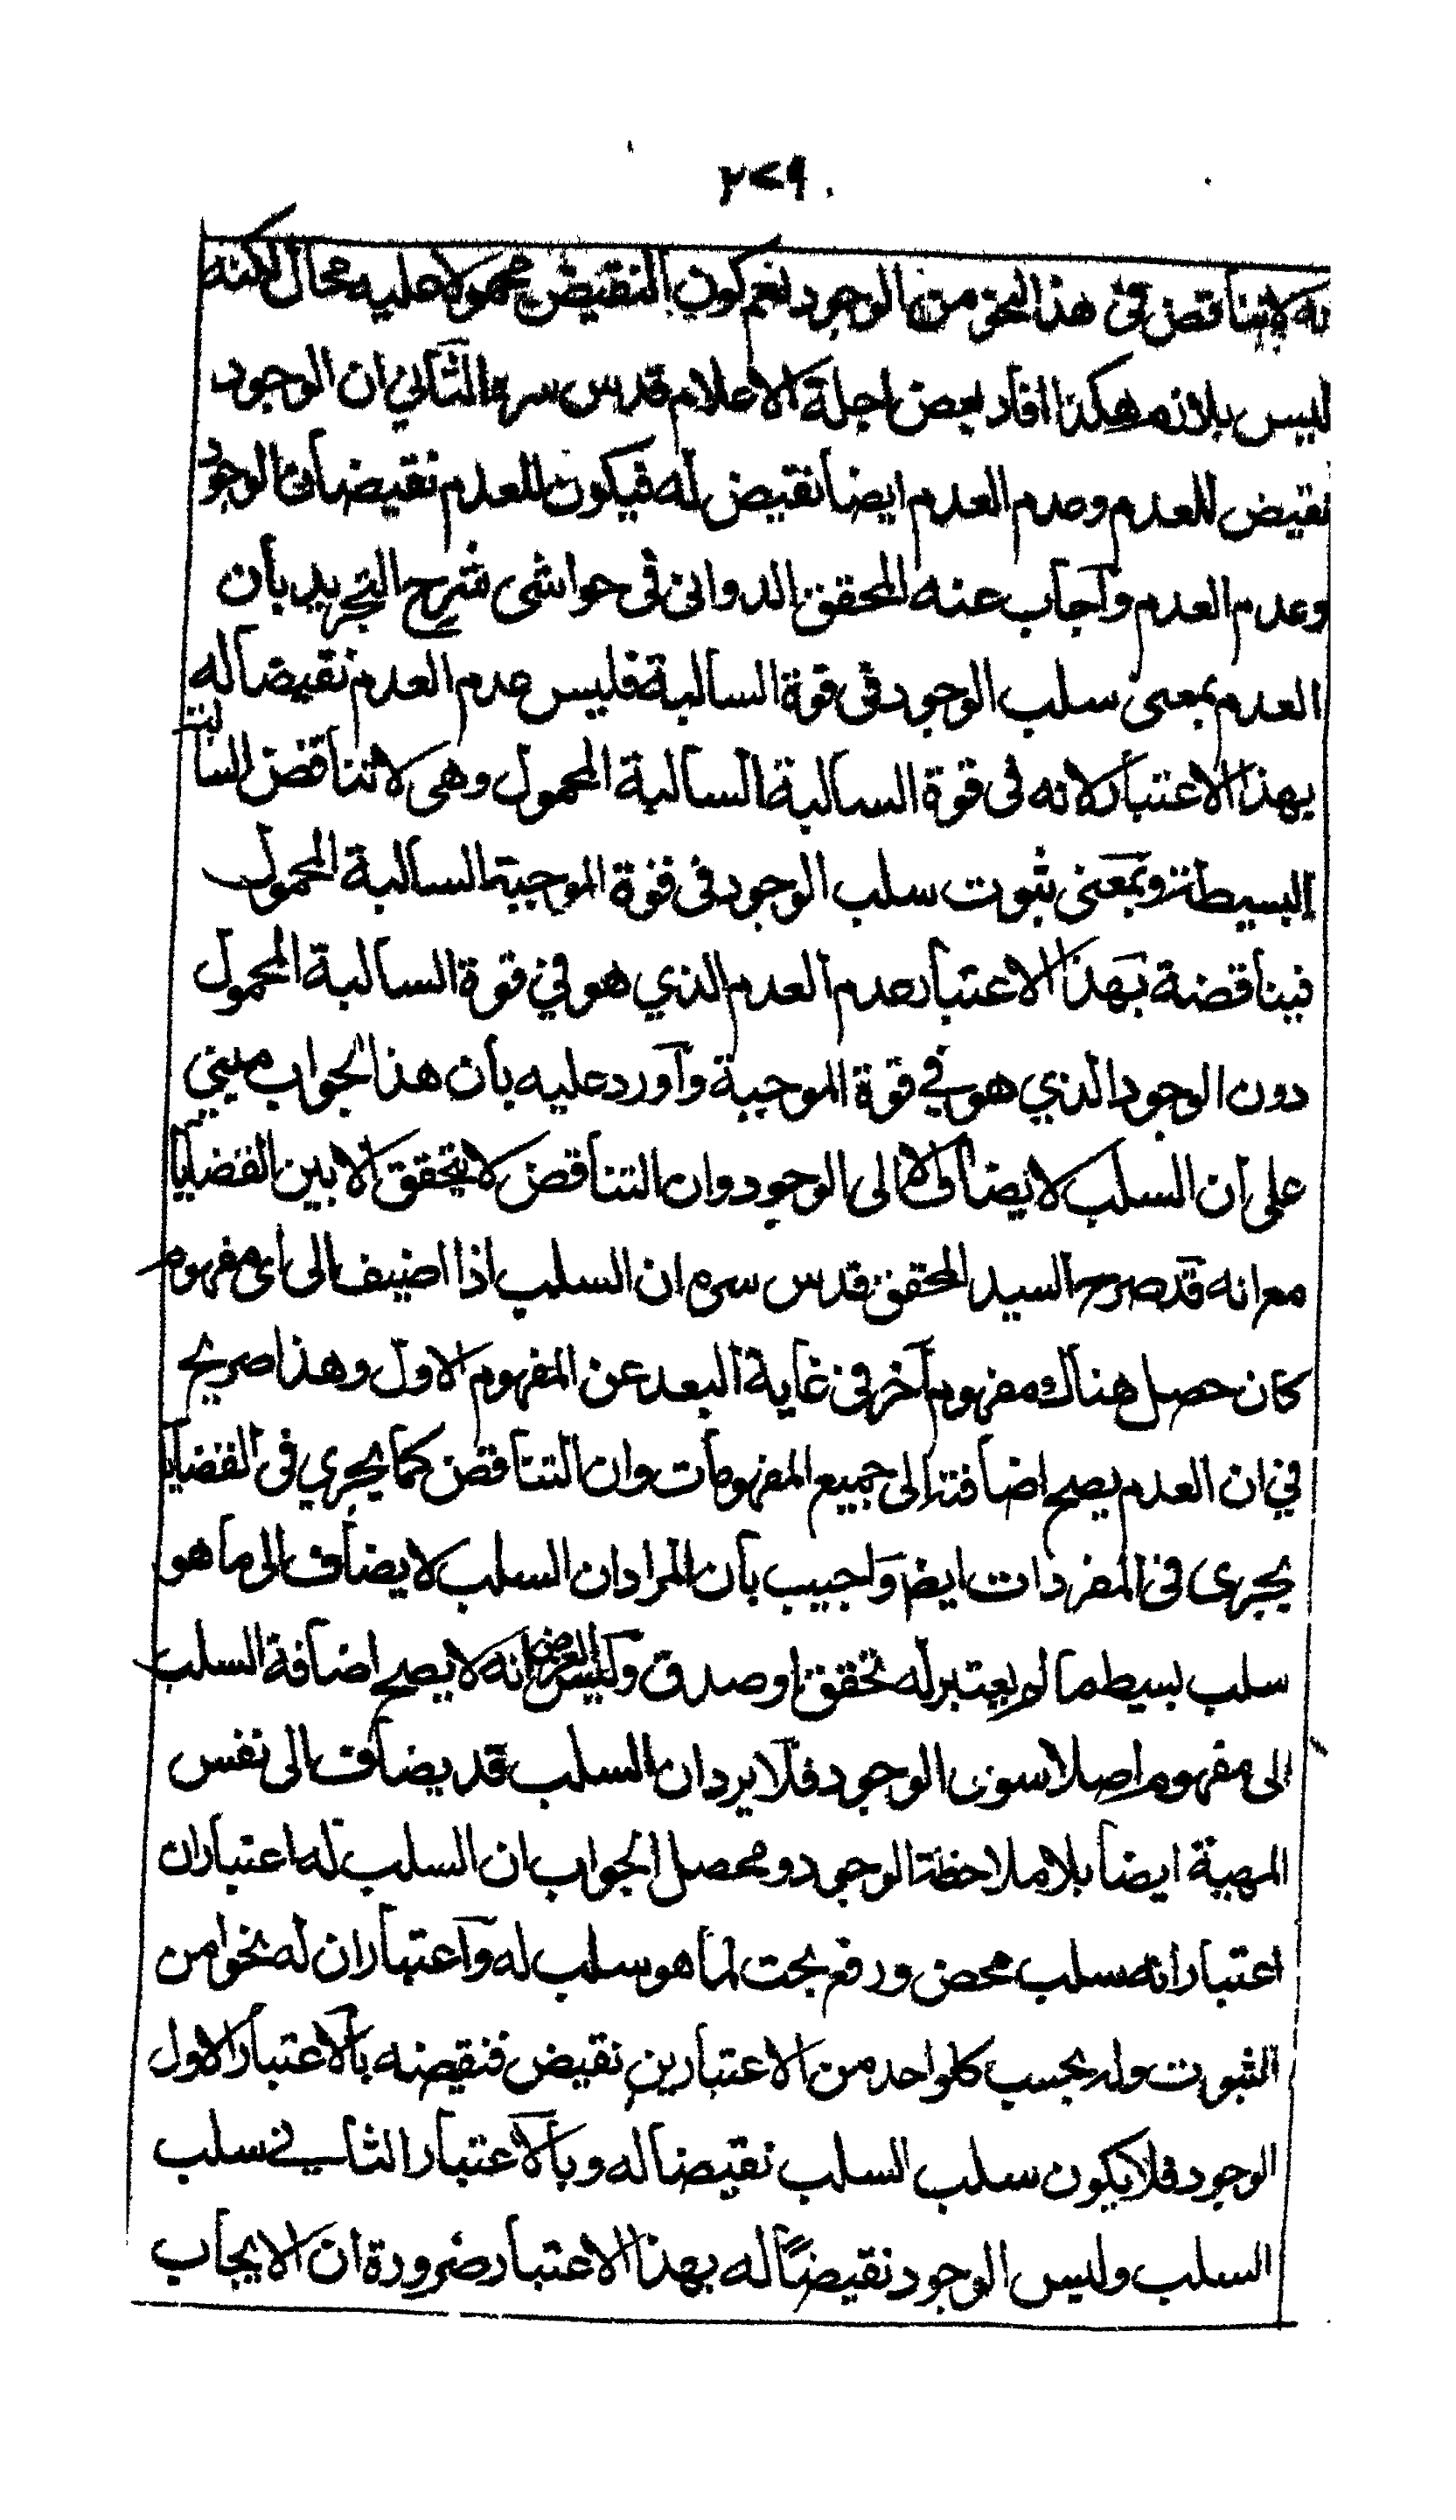 ٢٧٩
نه لا يناقض فى هذا النحو من الوجود نعم كون النقيض محمولا عليه محال لكنه
ليس بلازم هكذا افاد بعض اجلة الاعلام قدس سره الثاني ان الوجود
نقيض للعدم وعدم العدم ايضا نقيض له فيكون للعدم نقيضان الوجود
وعدم العدم وآجاب عنه المحقق الدوانى فى حواشى شرح التجريد بأن
العدم بمعنى سلب الوجود فى قوة السالبة فليس عدم العدم نقيضا له
بهذا الاعتبار لانه فى قوة السالبة السالبة المحمول وهى لا تناقض السالبة
البسيطة وبمعنى ثبوت سلب الوجود فى قوة الموجبة السالبة المحمول
فيناقضة بهذا الاعتبار عدم العدم الذي هو في قوة السالبة المحمول
دون الوجود الذي هو في قوة الموجبة وآورد عليه بأن هذا الجواب مبني
على ان السلب لا يضاف الا الى الوجود وان التناقض لا يتحقق الا بين القضايا
مع انه قد صرح السيد المحقق قدس سره ان السلب اذا اضيف الى اى مفهوم
كان حصل هناك مفهوم آخر في غاية البعد عن المفهوم الاول وهذا صريح
في ان العدم يصح اضافته إلى جميع المفهومات وان التناقض كما يجري فى القضايا
يجرى فى المفردات ايضا وآجيب بأن المراد ان السلب لا يضاف الى ما هو
سلب بسيط ما لم يعتبر له تحقق او صدق وليس الغرض انه لا يصح اضافة السلب
الى مفهوم اصلا سوى الوجود فلا يرد ان السلب قد يضاف الى نفس
المهية ايضا بلا ملاحظة الوجود ومحصل الجواب ان السلب له اعتباران
اعتبار انه سلب محض ورفع بحت لما هو سلب له وآعتبار ان له نحوا من
الثبوت وله بحسب كلواحد من الاعتبارين نقيض فنقيضه بالآعتبار الاول
الوجود فلا يكون سلب السلب نقيضا له وبالآعتبار الثاني سلب
السلب وليس الوجود نقيضًا له بهذا الاعتبار ضرورة ان الايجاب